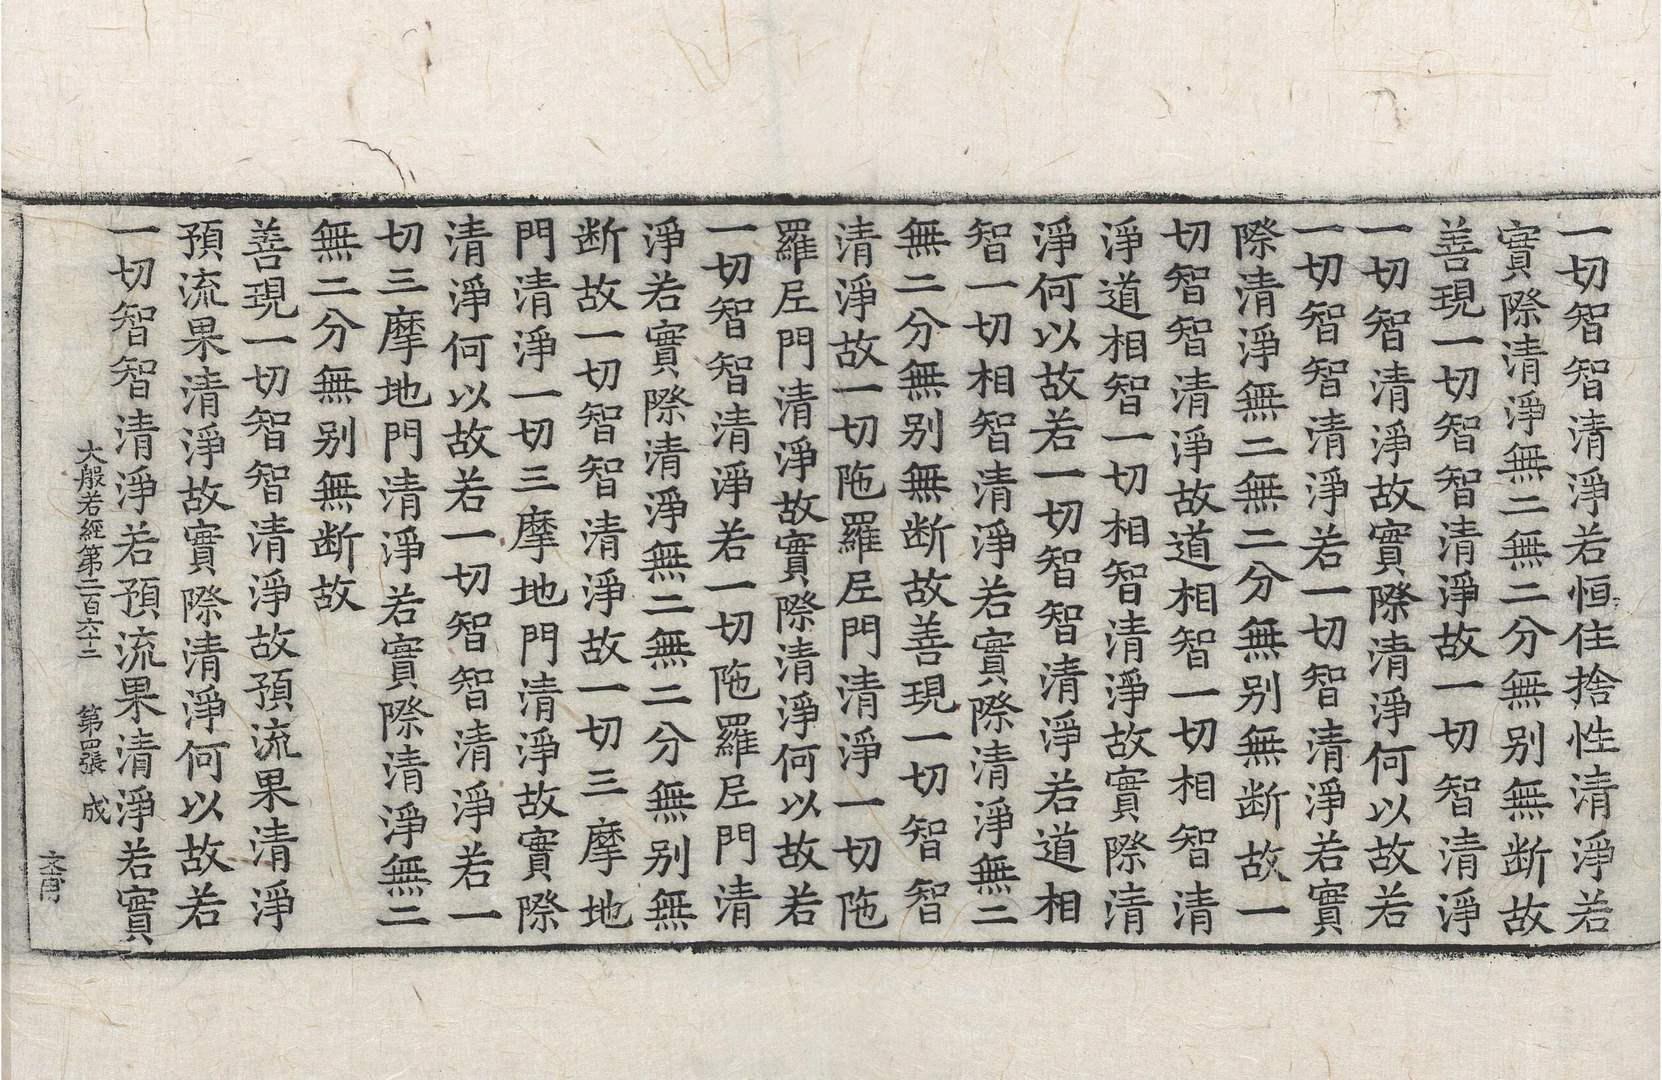 一切智智清淨若恒住捨性清淨若
實際清淨無二無二分無别無断故
善現一切智智清淨故一切智清淨
一切智清淨故實際清淨何以故若
一切智智清淨若一切智清淨若實
際清淨無二無二分無别無断故一
切智智清淨故道相智一切相智清
淨道相智一切相智清淨故實際清
淨何以故若一切智智清淨若道相
智一切相智清淨若實際清淨無二
無二分無别無断故善現一切智智
清淨故一切陁羅尼門清淨一切陁
羅尼門清淨故實際清淨何以故若
一切智智清淨若一切陁羅尼門清
淨若實際清淨無二無二分無别無
断故一切智智清淨故一切三摩地
門清淨一切三摩地門清淨故實際
清淨何以故若一切智智清淨若一
切三摩地門清淨若實際清淨無二
無二分無别無断故
善現一切智智清淨故預流果清淨
預流果清淨故實際清淨何以故若
一切智智清淨若預流果清淨若實
大般若經第二百六十二 第四張 成